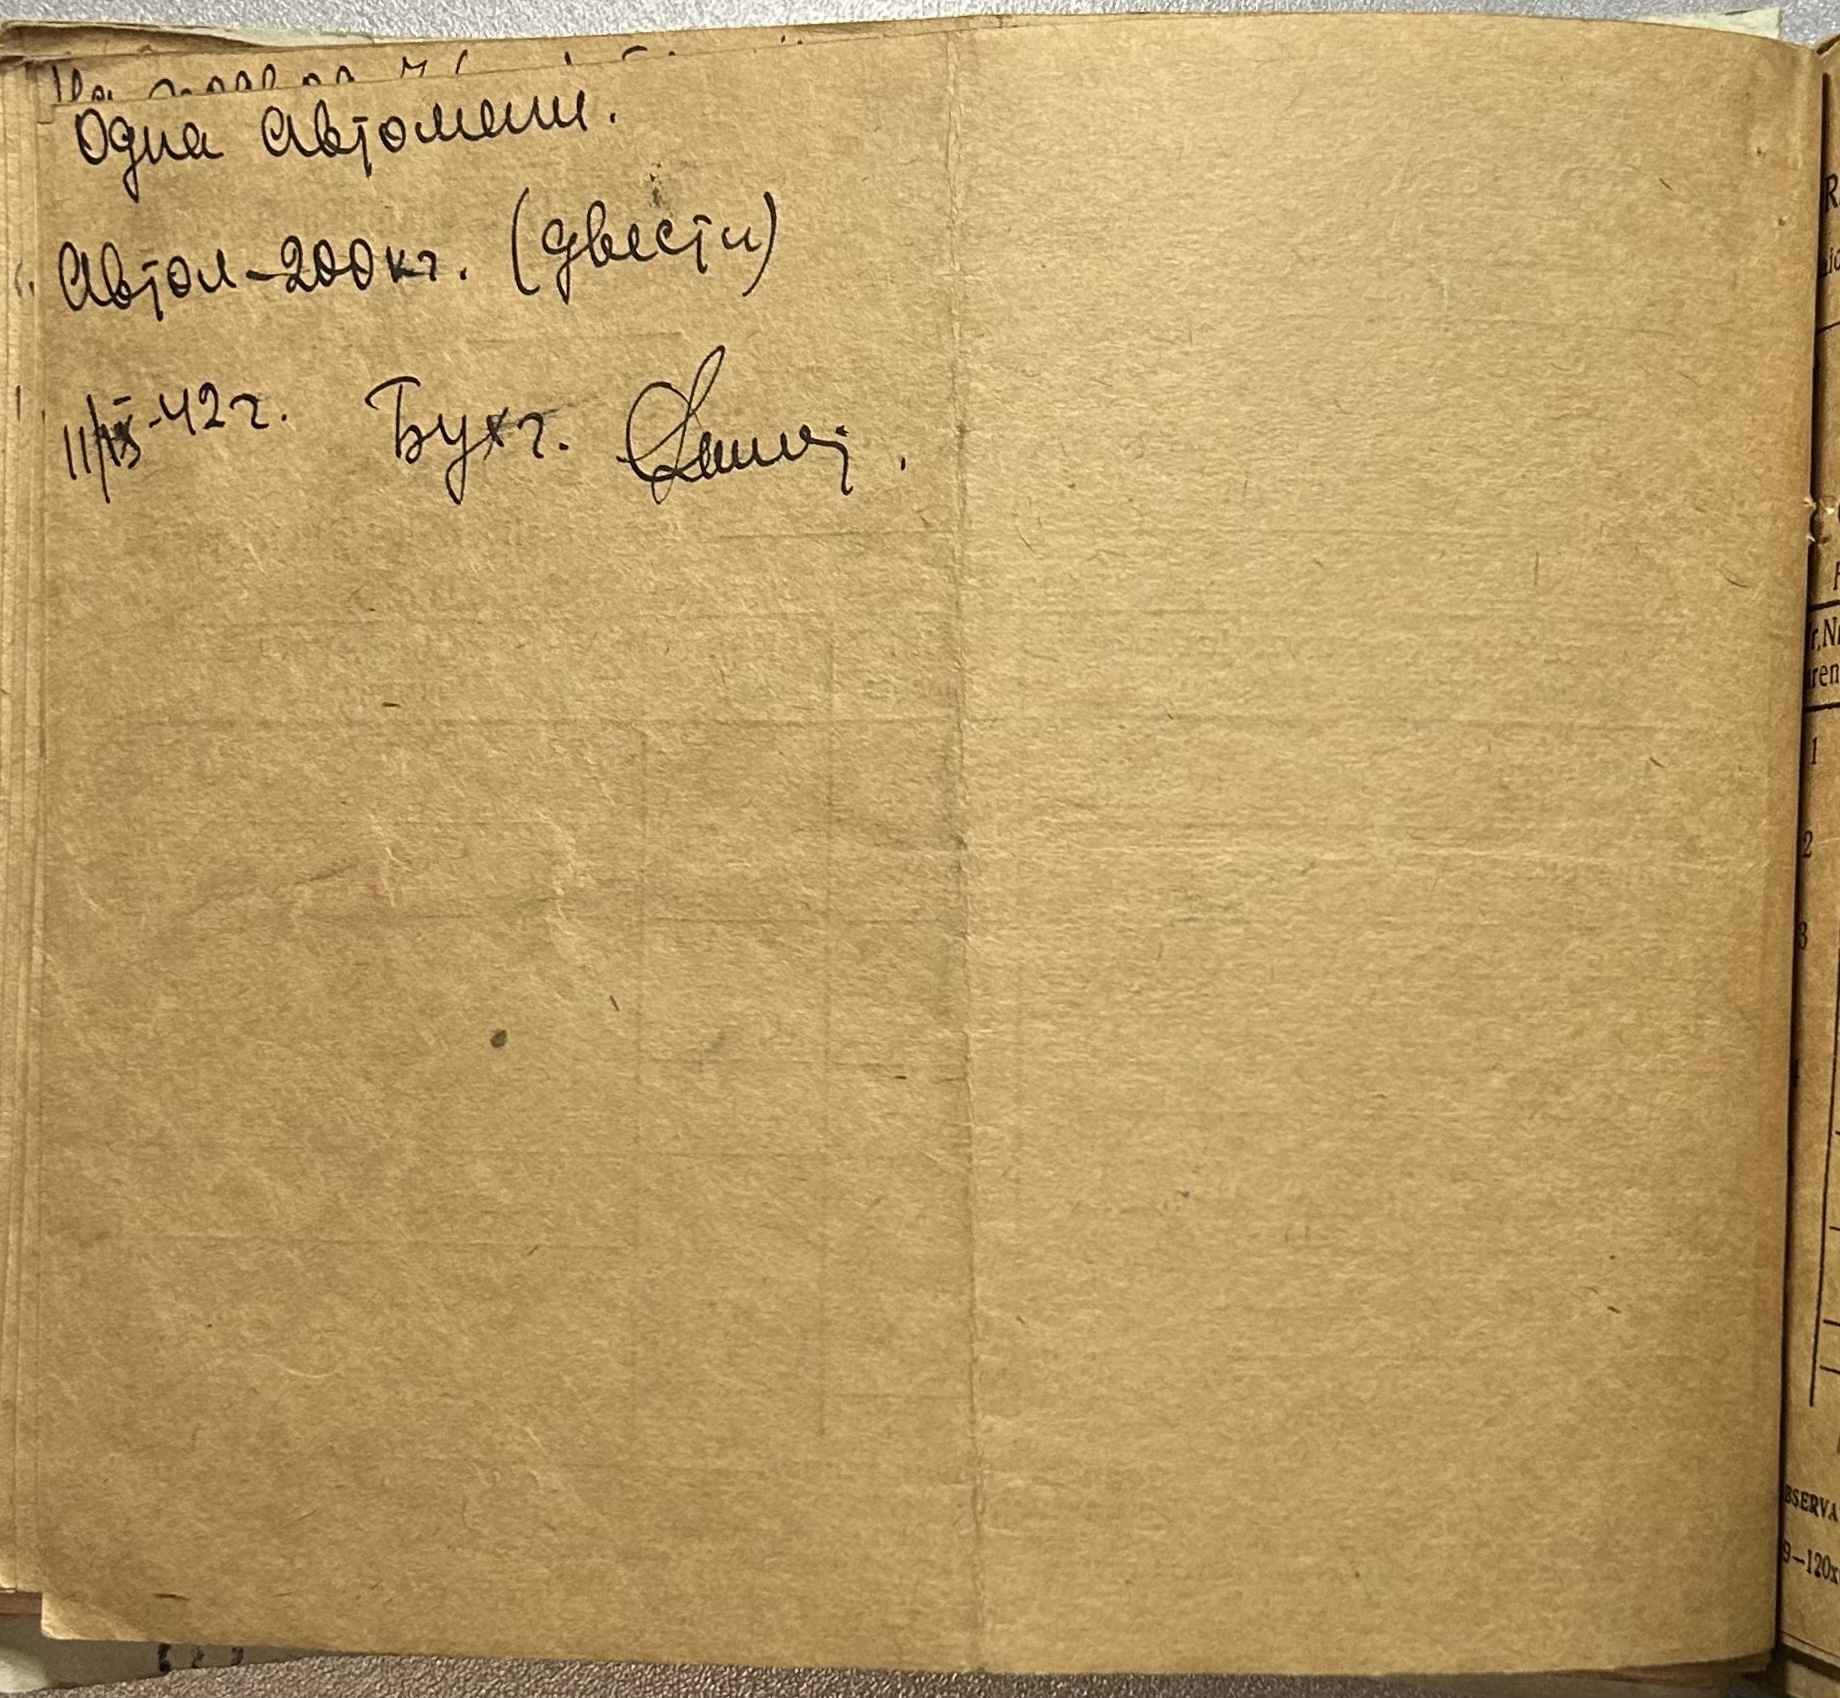 Одна Автомаш.
Автол-200кг. (двести)
11/IX-42г. Бухг.
R
r.N
ren
1
2
3
4
BSERVA
9-120x